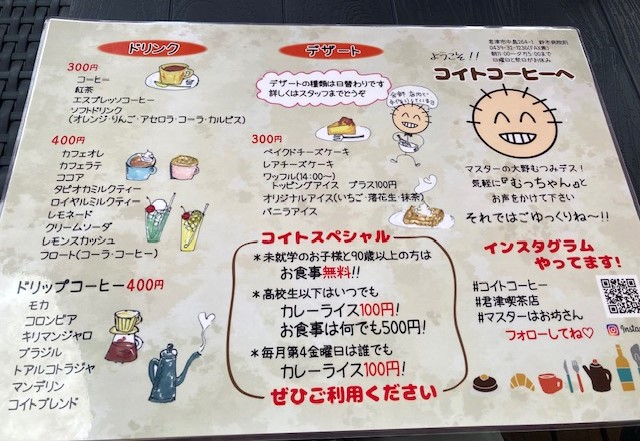 ドリンク
300円
コーヒー
紅茶
エスプレッソコーヒー
ソフトドリンク
(オレンジ・りんご・アセロラ・コーラ・カルピス)
400円
カフェオレ
カフェラテ
ココア
タピオカミルクティー
ロイヤルミルクティー
レモネード
クリームソーダ
レモンスカッシュ
フロート(コーラ・コーヒー)
ドリップコーヒー400円
モカ
コロンビア
キリマンジャロ
ブラジル
トアルコトラジャ
マンデリン
コイトブレンド
デザート
デザートの種類は日替わりです
詳しくはスタッフまでどうぞ
300円
ベイクドチーズケーキ
レアチーズケーキ
ワッフル(14:00〜)
トッピングアイス プラス100円
オリジナルアイス(いちご・落花生・抹茶)
バニラアイス
コイトスペシャル
*未就学のお子様と90歳以上の方は
お食事無料!!
*高校生以下はいつでも
カレーライス100円!
お食事は何でも500円!
*毎月第4金曜日は誰でも
カレーライス100円!
ぜひご利用ください
ようこそ!!
コイトコーヒーへ
マスターの大野むつみデス!
気軽に『むっちゃん』と
お声をかけて下さい
それではごゆっくりね〜!!
インスタグラム
やってます!
#コイトコーヒー
#君津喫茶店
#マスターはお坊さん
フォローしてね♡